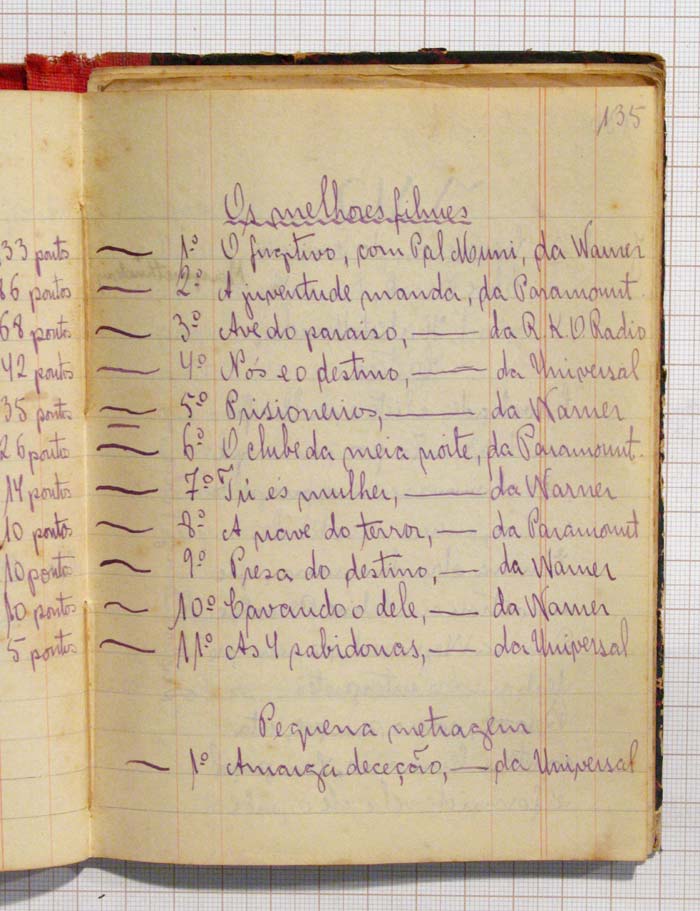 135
Os melhores filmes
33 pontos — 1º O fugitivo, com Pal Muni, da Warner
86 pontos — 2º A juventude manda, da Paramount.
68 pontos — 3º Ave do paraiso, — da R.K.O Radio
42 pontos — 4º Nós e o destino, — da Universal
35 pontos — 5º Prisioneiros, — da Warner
26 pontos — 6º O clube da meia noite, da Paramount.
14 pontos — 7º Tú és mulher, — da Warner
10 pontos — 8º A nave do terror, — da Paramount
10 pontos — 9º Presa do destino, — da Warner
10 pontos — 10º Cavando o dele, — da Warner
5 pontos — 11º As 4 sabidonas, — da Universal
Pequena metragem
— 1º Amarga deceção, — da Universal